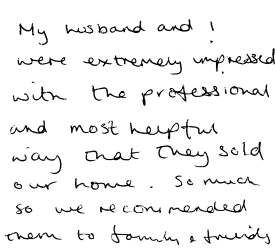 My husband and I
were extremely impressed
with the professional
and most helpful
way that they sold
our home. So much
so we recommended
them to family & friends